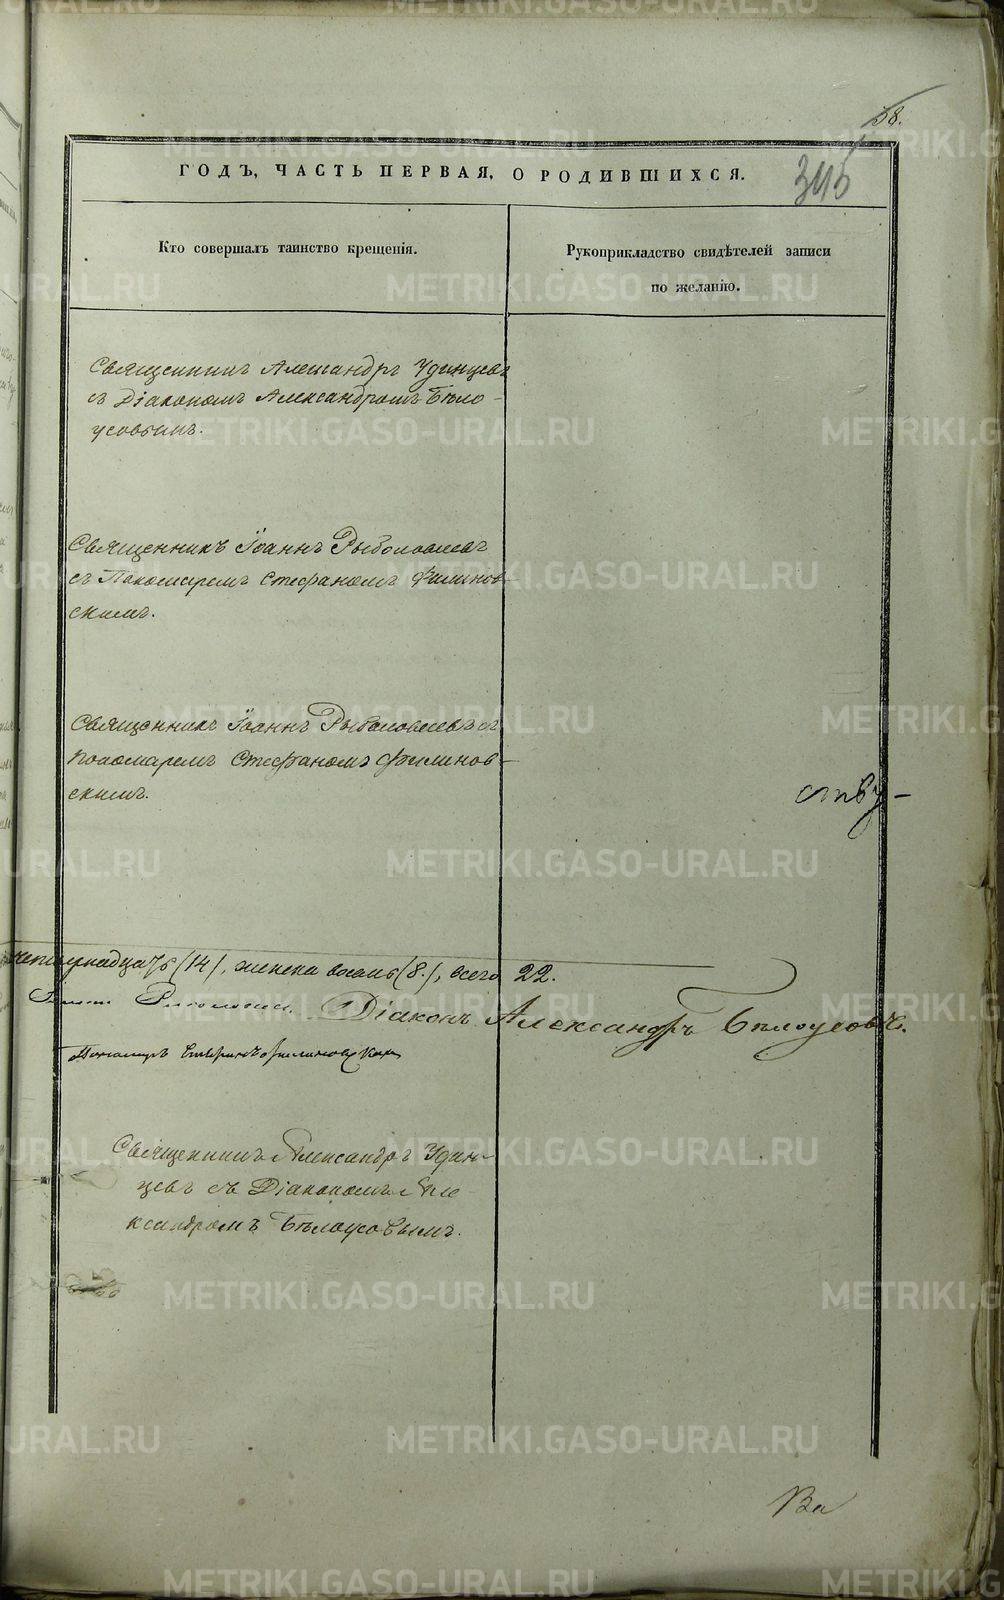 58.
345
ГОДЪ, ЧАСТЬ ПЕРВАЯ, О РОДИВШИХСЯ.
Кто совершалъ таинство крещенія.
Рукоприкладство свидѣтелей записи
по желанію.
Священникъ Александръ Удинцевъ
съ Діакономъ Александромъ Бѣло-
усовымъ.
Священникъ Іоаннъ Рыболовлевъ
съ Пономаремъ Стефаномъ Филинов-
скимъ.
Священникъ Іоаннъ Рыболовлевъ съ
Пономаремъ Стефаномъ Филинов-
скимъ.
ству-
четырнадцать (14), женска восемь (8), всего 22.
Діаконъ Александръ Бѣлоусовъ.
Пономарь Стефанъ Филиновскій
Священникъ Александръ Удин-
цевъ съ Діакономъ Але-
ксандромъ Бѣлоусовымъ.
Ва
METRIKI.GASO-URAL.RU